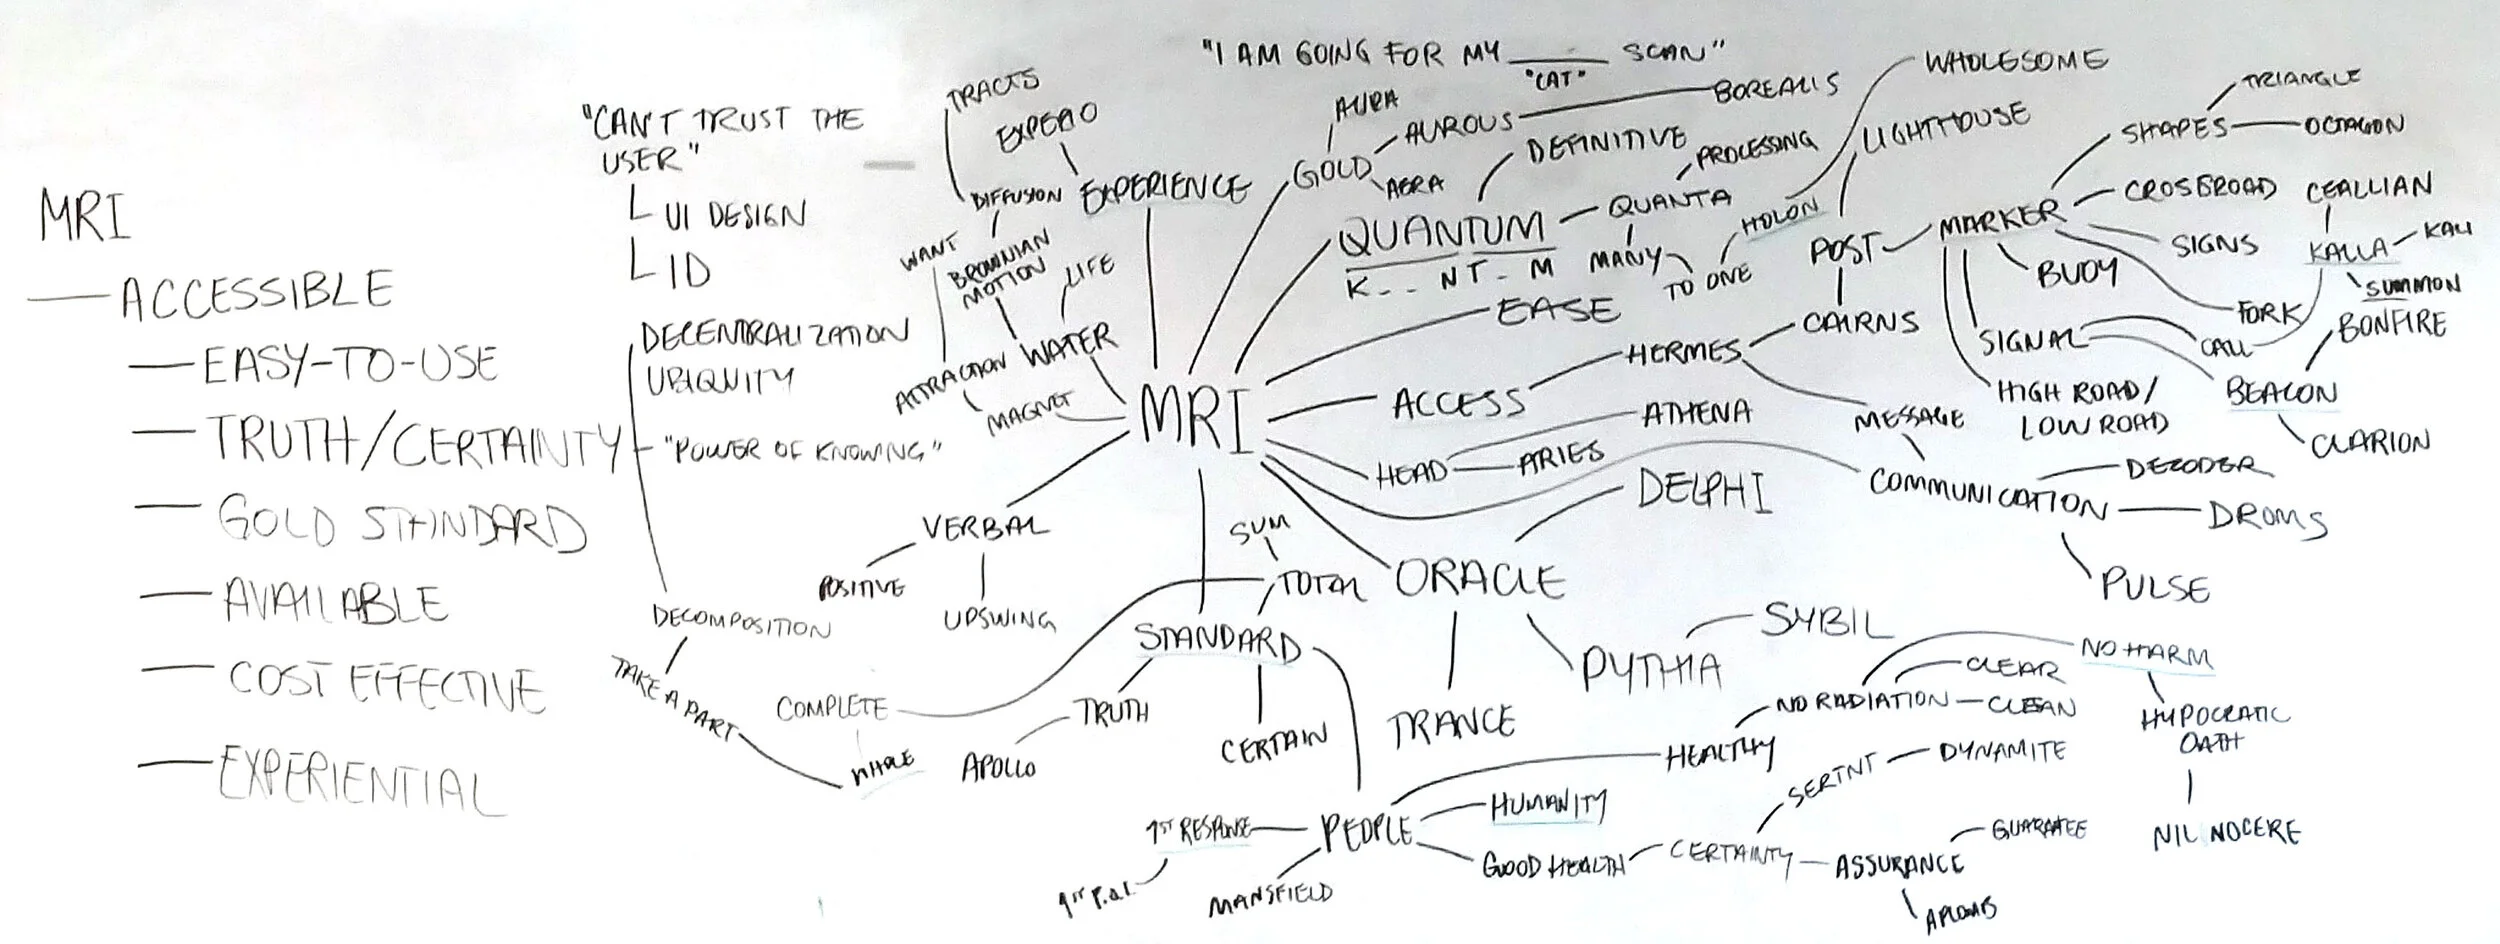 MRI
— ACCESSIBLE
— EASY-TO-USE
— TRUTH/CERTAINTY
— GOLD STANDARD
— AVAILABLE
— COST EFFECTIVE
— EXPERIENTIAL
"CAN'T TRUST THE
USER"
UI DESIGN
ID
DECENTRALIZATION
UBIQUITY
"POWER OF KNOWING"
DECOMPOSITION
TAKE A PART
COMPLETE
WHOLE
"I AM GOING FOR MY ____ SCAN"
"CAT"
TRACTS
EXPERIO
DIFFUSION
EXPERIENCE
WANT
BROWNIAN
MOTION
LIFE
ATTRACTION
WATER
MAGNET
MRI
VERBAL
POSITIVE
UPSWING
AURA
GOLD
AUROUS
BOREALIS
AERA
DEFINITIVE
QUANTUM
K_ _ NT_M
PROCESSING
QUANTA
MANY
TO ONE
HOLON
WHOLESOME
LIGHTHOUSE
EASE
ACCESS
HERMES
CAIRNS
POST
MARKER
SHAPES
TRIANGLE
OCTAGON
CROSSROAD
SIGNS
BUOY
FORK
SIGNAL
CALL
HIGH ROAD/
LOW ROAD
CEALLIAN
KALLA
KALI
SUMMON
BONFIRE
BEACON
CLARION
MESSAGE
COMMUNICATION
DECODER
DRUMS
PULSE
HEAD
ATHENA
ARIES
ORACLE
DELPHI
TRANCE
PYTHIA
SYBIL
SUM
TOTAL
STANDARD
TRUTH
APOLLO
CERTAIN
PEOPLE
1ST RESPONSE
MANSFIELD
HUMANITY
HEALTHY
NO RADIATION
CLEAR
CLEAN
NO HARM
HYPOCRATIC
OATH
NIL NOCERE
GOOD HEALTH
CERTAINTY
SERTNT
DYNAMITE
ASSURANCE
GUARATEE
APLOMB